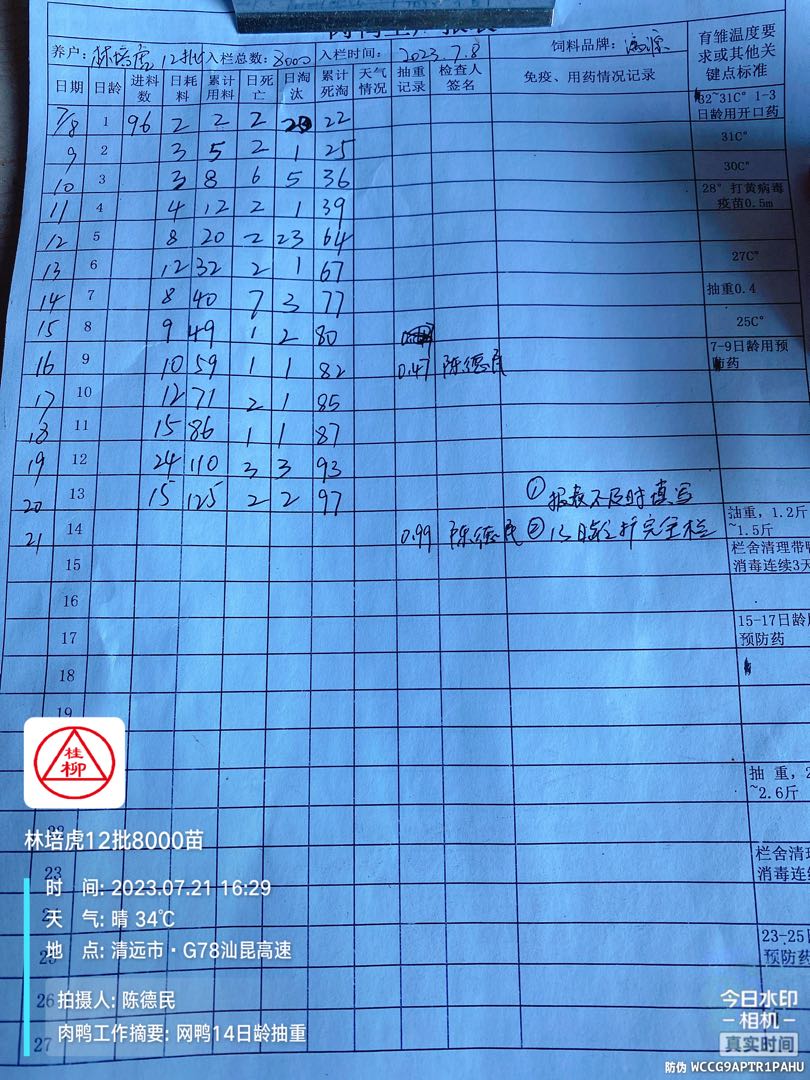 养户: 林培虎 12批 入栏总数: 8000 入栏时间: 2023.7.8 饲料品牌:
育雏温度要求或其他关键点标准
日期 日龄 进料数 日耗料 累计用料 日死亡 日淘汰 累计死淘 天气情况 抽重记录 检查人签名 免疫、用药情况记录
7/8 1 96 2 2 2 20 22 32~31C° 1-3日龄用开口药
9 2 3 5 2 1 25 31C°
10 3 3 8 6 5 36 30C°
11 4 4 12 2 1 39 28° 打黄病毒疫苗0.5m
12 5 8 20 2 23 64
13 6 12 32 2 1 67 27C°
14 7 8 40 7 3 77 抽重0.4
15 8 9 49 1 2 80 25C°
16 9 10 59 1 1 82 0.47 陈德民 7-9日龄用预防药
17 10 12 71 2 1 85
18 11 15 86 1 1 87
19 12 24 110 3 3 93
20 13 15 125 2 2 97 ①报表不及时填写
21 14 0.99 陈德民 ②13日龄扩完全栏 抽重, 1.2斤~1.5斤
15 栏舍清理带鸭消毒连续3天
16
17 15-17日龄用预防药
18
19
抽 重, 2
~2.6斤
桂柳
林培虎12批8000苗
23 栏舍清理
消毒连续
时 间: 2023.07.21 16:29
天 气: 晴 34℃
地 点: 清远市·G78汕昆高速
23-25
预防药
26
拍摄人: 陈德民
27
肉鸭工作摘要: 网鸭14日龄抽重
今日水印
相机
真实时间
防伪 WCCG9APTR1PAHU